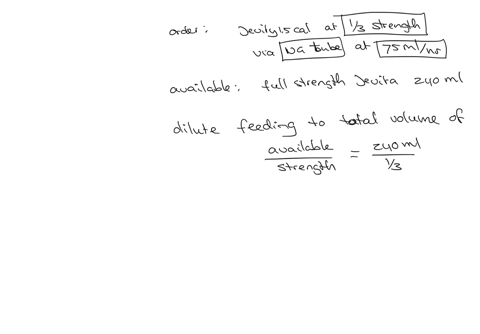 order: Jevity is cal at 1/3 strength
via NG tube at 75 ml/hr
available: full strength Jevita 240 ml
dilute feeding to total volume of
available/strength = 240 ml/1/3